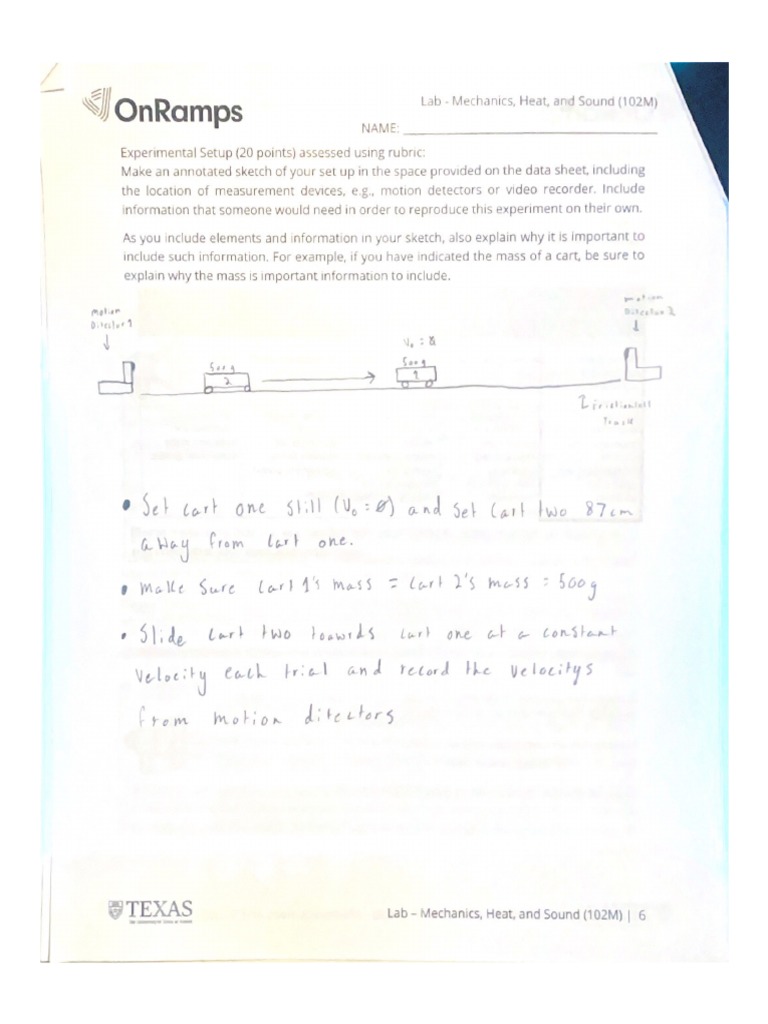 OnRamps
Lab - Mechanics, Heat, and Sound (102M)
NAME:
Experimental Setup (20 points) assessed using rubric:
Make an annotated sketch of your set up in the space provided on the data sheet, including
the location of measurement devices, e.g., motion detectors or video recorder. Include
information that someone would need in order to reproduce this experiment on their own.
As you include elements and information in your sketch, also explain why it is important to
include such information. For example, if you have indicated the mass of a cart, be sure to
explain why the mass is important information to include.
motion
motion
1
2
V₀ = Ø
500g
500g
2
1
Track
• Set cart one still (V₀ = Ø) and set cart two 87cm
away from cart one.
• Make sure cart 1's mass = cart 2's mass = 500g
• Slide cart two toawrds cart one at a constant
velocity each trial and record the velocitys
from motion ditectors
TEXAS
Lab – Mechanics, Heat, and Sound (102M) | 6